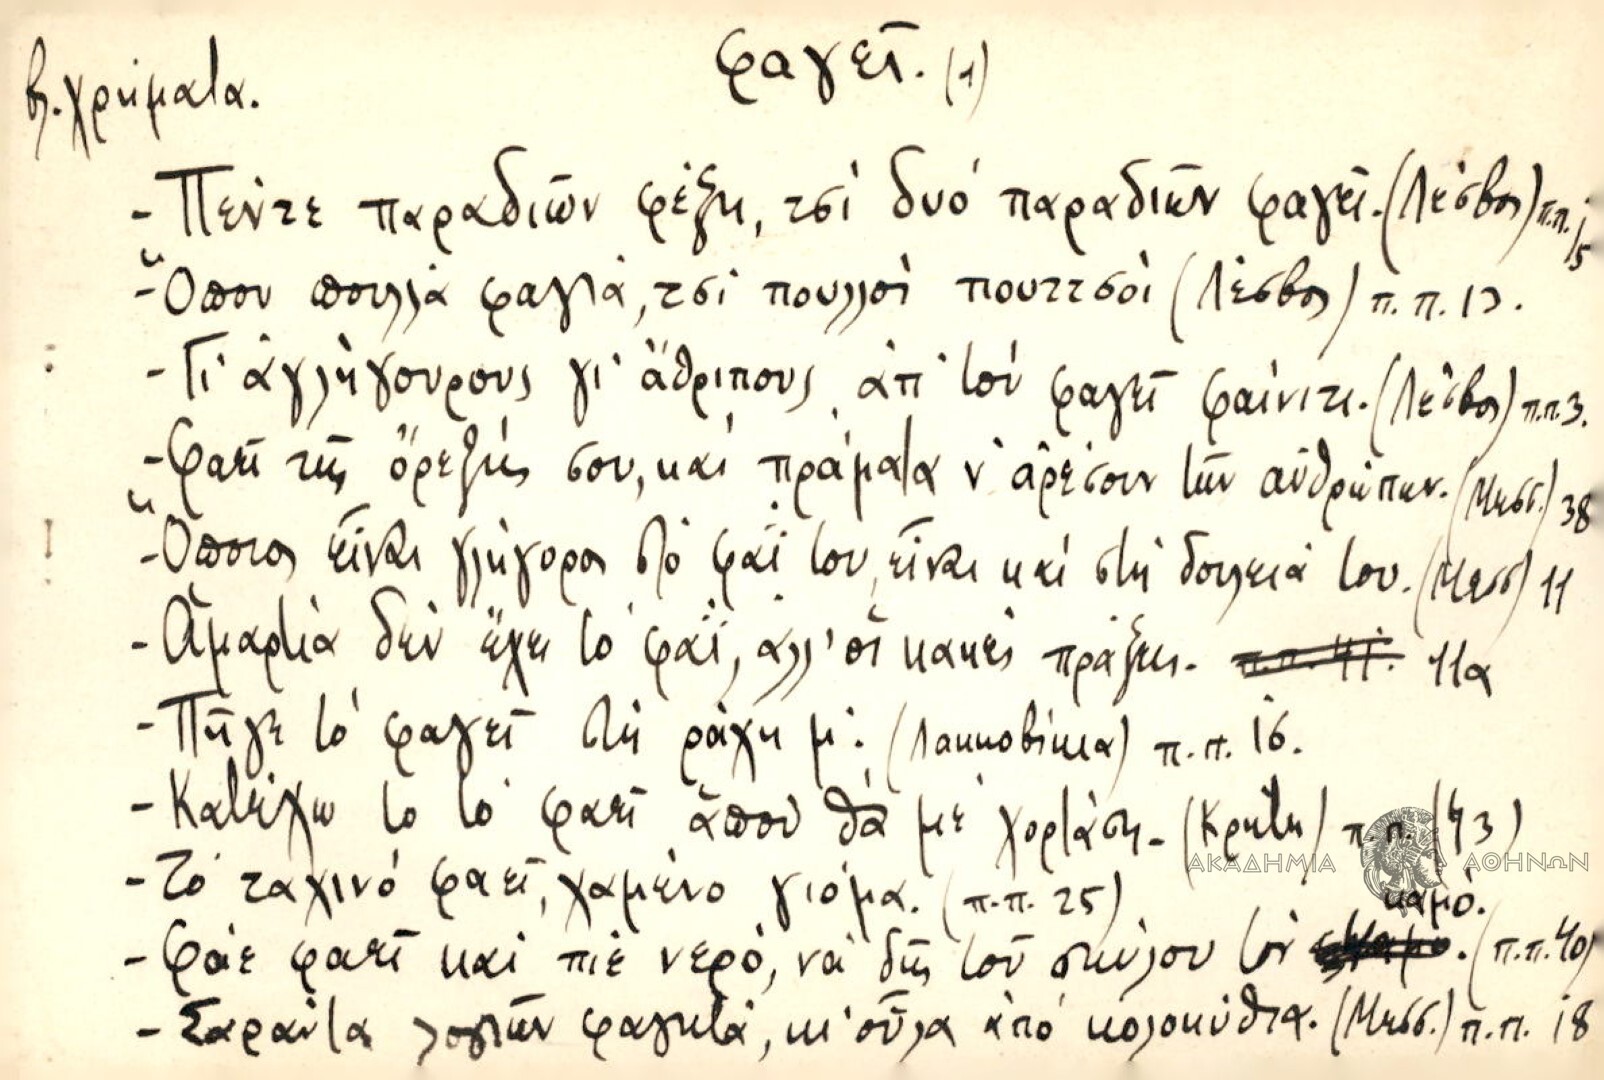 φαγεῖ. (1)
βλ. χρήματα.
- Πέντε παραδιῶν φέξη, τσὶ δυὸ παραδιῶν φαγεῖ. (Λέσβος) π.π. 15
- Ὅπου πουλλὰ φαγιά, τσὶ πουλλοὶ πουττσοὶ (Λέσβος) π.π. 13.
- Γι' ἀγλήγουρους γι' ἄθριπους ἀπ' τοὺ φαγεῖ φαίνιτι. (Λέσβος) π.π. 3.
- Φαεῖ τῆς ὄρεξής σου, καὶ πράματα ν' ἀρέσουν τῶν ἀνθρώπων. (Μεσσ.) 38
- Ὅποιος εἶναι γλήγορος στὸ φαΐ του, εἶναι καὶ στὴ δουλειά του. (Μεσσ) 11
- Ἁμαρτία δὲν ἔχει τὸ φαΐ, ἀλλ' οἱ κακὲς πράξεις. 11α
- Πῆγε τὸ φαγεῖ στὴ ράχη μ'. (Λακκοβίκια) π.π. 16.
- Κατέχω το τὸ φαεῖ ἁποὺ θὰ μὲ χορτάση. (Κρήτη) π.π. (43)
- Τὸ ταχινὸ φαεῖ, χαμένο γιόμα. (π.π. 25)
- Φάε φαεῖ καὶ πιὲ νερό, νὰ δῆς τοῦ σκύλου τὸν καμό. (π.π. 40)
- Σαράντα λογιῶν φαγητά, κι' οὗλα ἀπὸ κολοκύθια. (Μεσσ.) π.π. 18
ΑΚΑΔΗΜΙΑ ΑΘΗΝΩΝ